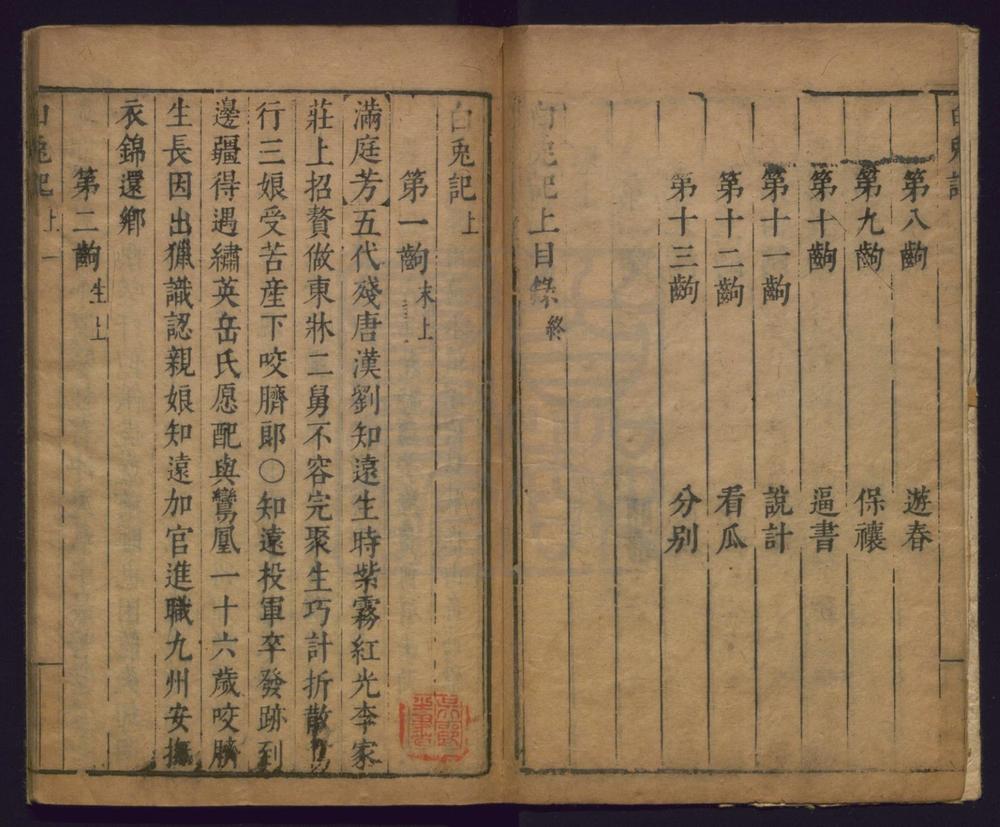 白兔記
第八齣　遊春
第九齣　保禳
第十齣　逼書
第十一齣　說計
第十二齣　看瓜
第十三齣　分别
白兔記上目錄終
白兔記上
第一齣末上
【滿庭芳】五代殘唐漢劉知遠生時紫霧紅光李家
莊上招贅做東牀二舅不容完聚生巧計折散
行三娘受苦産下咬臍郎〇知遠投軍卒發跡到
邊疆得遇繡英岳氏愿配與鸞凰一十六歲咬臍
生長因出獵識認親娘知遠加官進職九州安撫
衣錦還鄉
第二齣生上
白兔記上 一